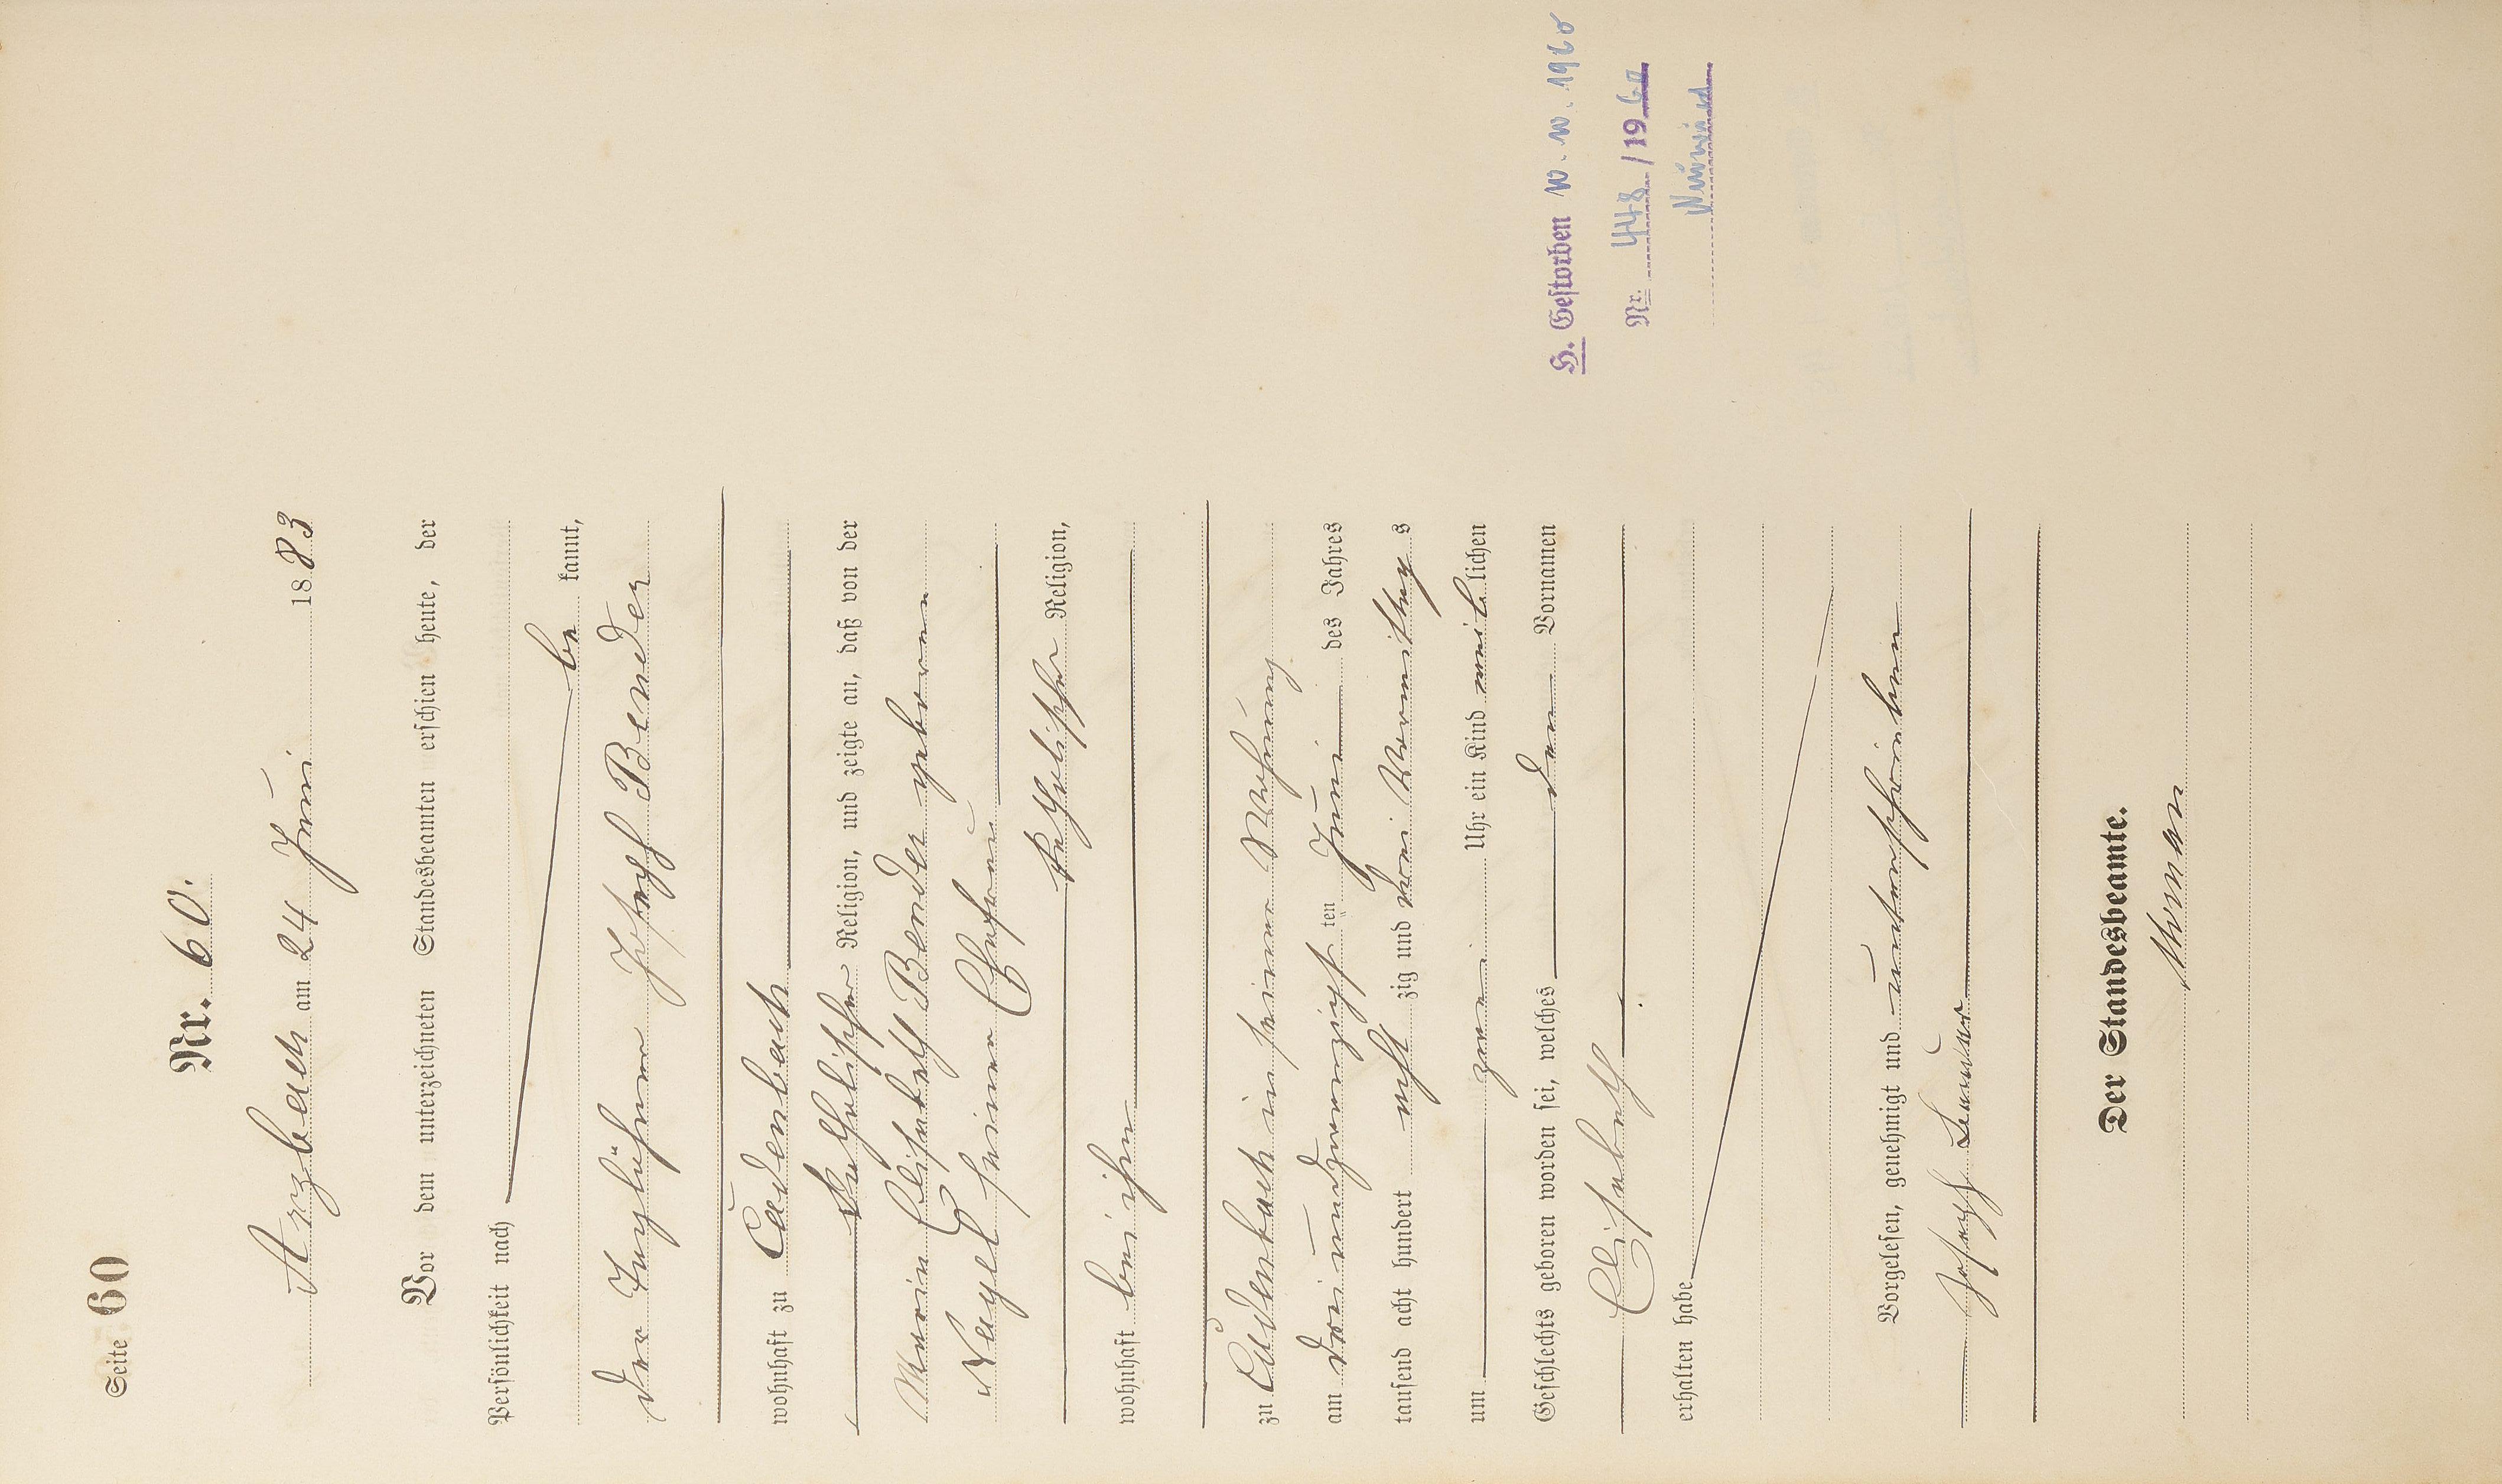 Seite 60
Nr. 60.
Arzbach am 24 Juni 1883
Vor dem unterzeichneten Standesbeamten erschien heute, der
Persönlichkeit nach
be kannt,
der Taglöhner Joseph Bender
wohnhaft zu Cadenbach
katholischer Religion, und zeigte an, daß von der
Maria Elisabeth Bender geborene
Nagel seiner Ehefrau
katholischer Religion,
wohnhaft bei ihm
zu Cadenbach in seiner Wohnung
am drei und zwanzigsten Juni des Jahres
tausend acht hundert acht zig und drei Vormittags
um zwei Uhr ein Kind weiblichen
Geschlechts geboren worden sei, welches den Vornamen
Elisabeth
erhalten habe
Vorgelesen, genehmigt und unterschrieben
Joseph Bender
Der Standesbeamte.
H. Gestorben 10. 10. 1960
Nr. 448/1960
Neuwied